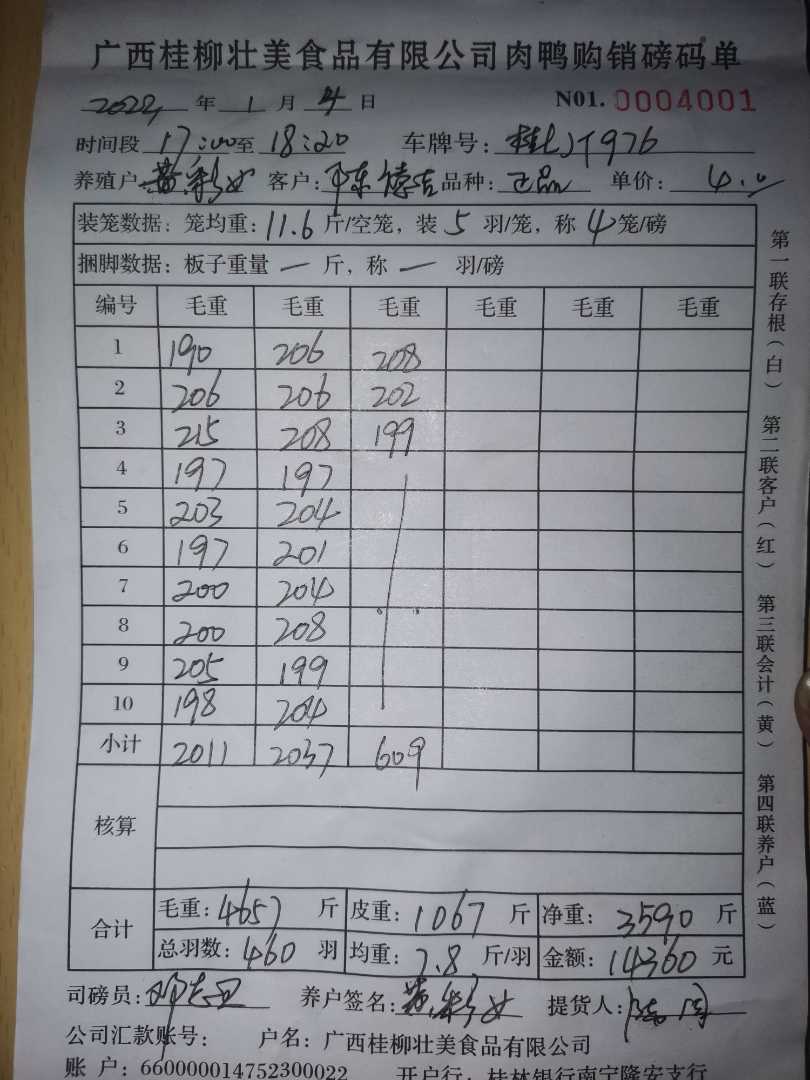 广西桂柳壮美食品有限公司肉鸭购销磅码单
2022年1月4日 N01. 0004001
时间段17:00至18:20 车牌号:
养殖户 黄彩女 客户: 品种:正品 单价:4.0
装笼数据:笼均重:11.6斤/空笼,装5羽/笼,称4笼/磅
捆脚数据:板子重量一斤,称一羽/磅
编号 毛重 毛重 毛重 毛重 毛重 毛重
1 190 206 208
2 206 206 202
3 215 208 199
4 197 197
5 203 204
6 197 201
7 200 204
8 200 208
9 205 199
10 198 204
小计 2011 2037 609
核算
合计 毛重:4657斤 皮重:1067斤 净重:3590斤
总羽数:460羽 均重:7.8斤/羽 金额:14360元
司磅员: 养户签名:黄彩女 提货人:
公司汇款账号: 户名:广西桂柳壮美食品有限公司
账 户:660000014752300022 开户行:桂林银行南宁隆安支行
第一联存根(白)
第二联客户(红)
第三联会计(黄)
第四联养户(蓝)